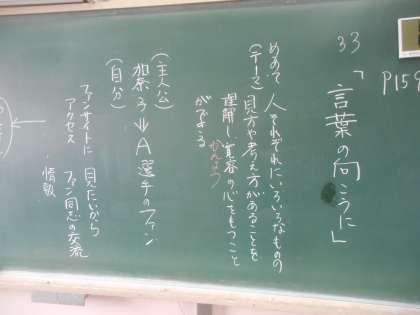 P159
33
「言葉の向こうに」
めあて 人それぞれにいろいろなものの
(テーマ) 見方や考え方があることを
理解し、寛容の心をもつこと
かんよう
ができる
(主人公)
加奈子⇒A選手のファン
(自分)
ファンサイトに
アクセス
見たいから
ファン同志の交流
情報